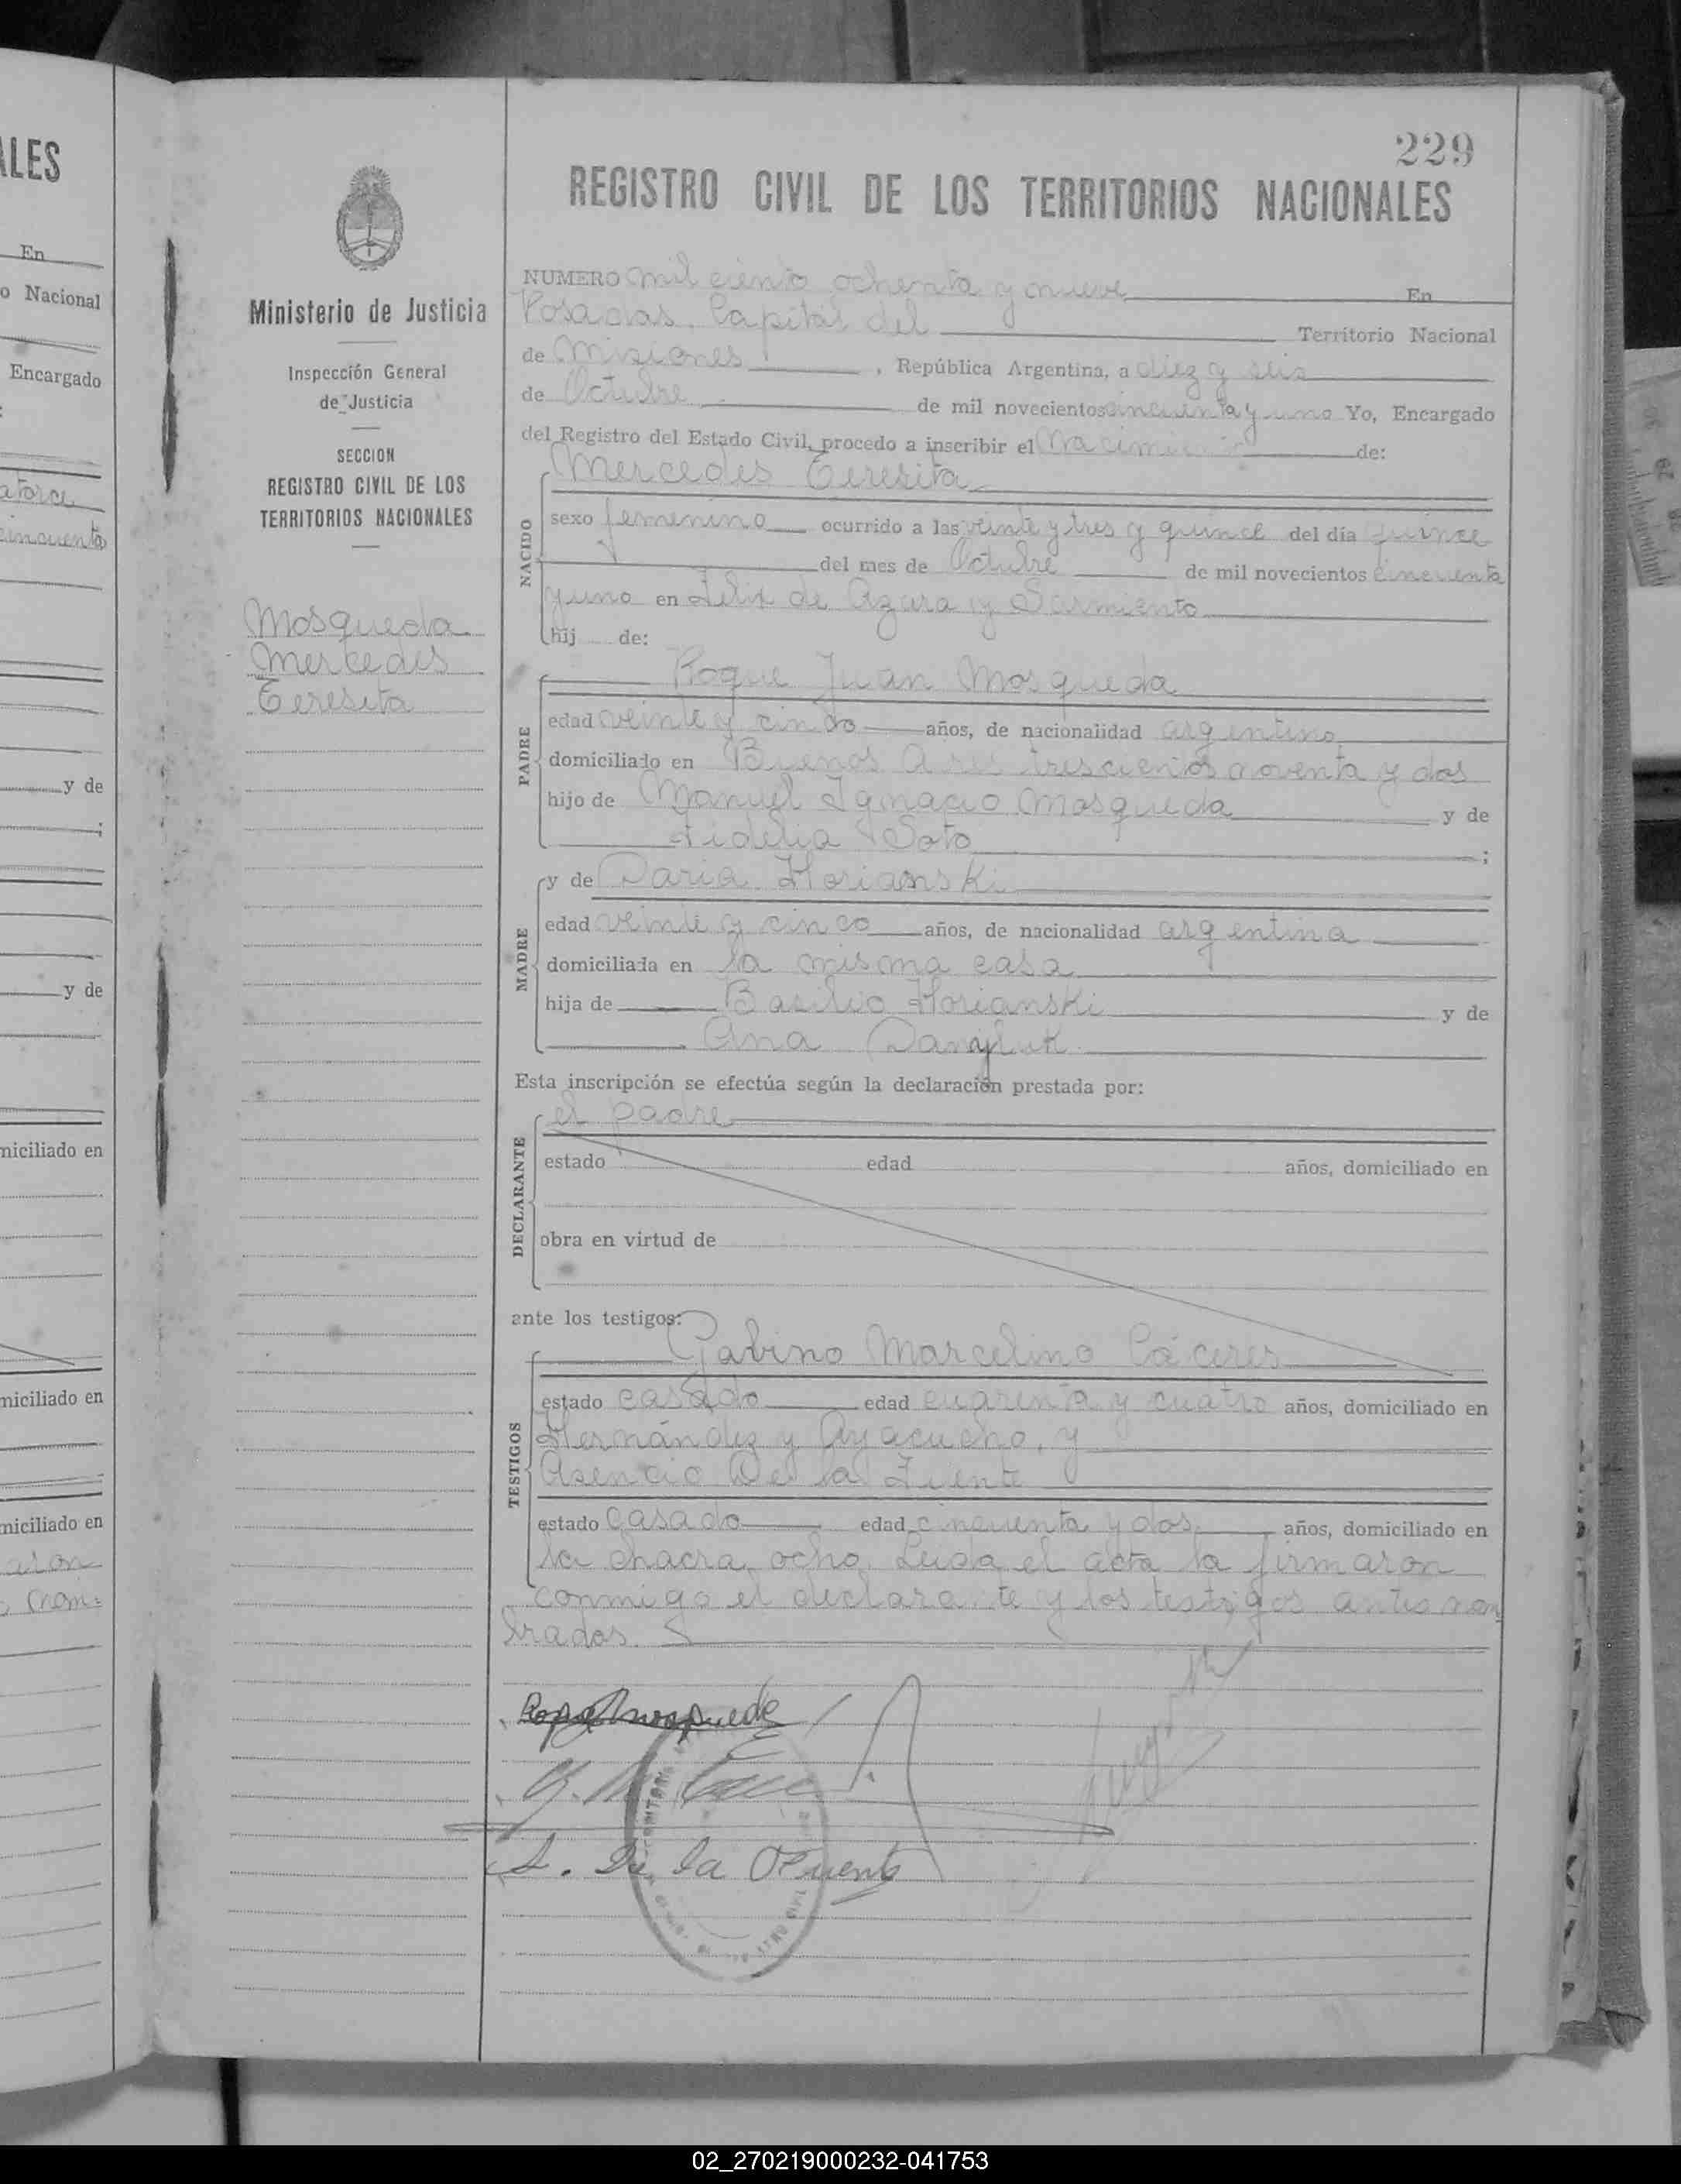 ALES
En
o Nacional
Encargado
atorce
cincuenta
y de
y de
miciliado en
miciliado en
miciliado en
aron
nom=
Ministerio de Justicia
Inspección General
de Justicia
SECCION
REGISTRO CIVIL DE LOS
TERRITORIOS NACIONALES
Mosqueda
Mercedes
Teresita
229
REGISTRO CIVIL DE LOS TERRITORIOS NACIONALES
NUMERO mil ciento ochenta y nueve En
Posadas, Capital del Territorio Nacional
de Misiones, República Argentina, a diez y seis
de Octubre de mil novecientos cincuenta y uno Yo, Encargado
del Registro del Estado Civil, procedo a inscribir el nacimiento de:
Mercedes Teresita
NACIDO
sexo femenino ocurrido a las veinte y tres y quince del día quince
del mes de Octubre de mil novecientos cincuenta
y uno en Félix de Azara y Sarmiento
hij de:
Roque Juan Mosqueda
PADRE
edad veinte y cinco años, de nacionalidad argentino
domiciliado en Buenos Aires trescientos noventa y dos
hijo de Manuel Ignacio Mosqueda y de
Fidelia Soto ;
y de Daria Horianski
MADRE
edad veinte y cinco años, de nacionalidad argentina
domiciliada en la misma casa
hija de Basilio Horianski y de
Ana Danajluk
Esta inscripción se efectúa según la declaración prestada por:
el padre
DECLARANTE
estado edad años, domiciliado en
obra en virtud de
ante los testigos:
Gabino Marcelino Cáceres
TESTIGOS
estado casado edad cuarenta y cuatro años, domiciliado en
Hernández y Ayacucho, y
Asencio De la Fuente
estado casado edad cincuenta y dos años, domiciliado en
la chacra ocho. Leida el acta la firmaron
conmigo el declarante y los testigos antes nom
brados.
A. De la Fuente
02_270219000232-041753